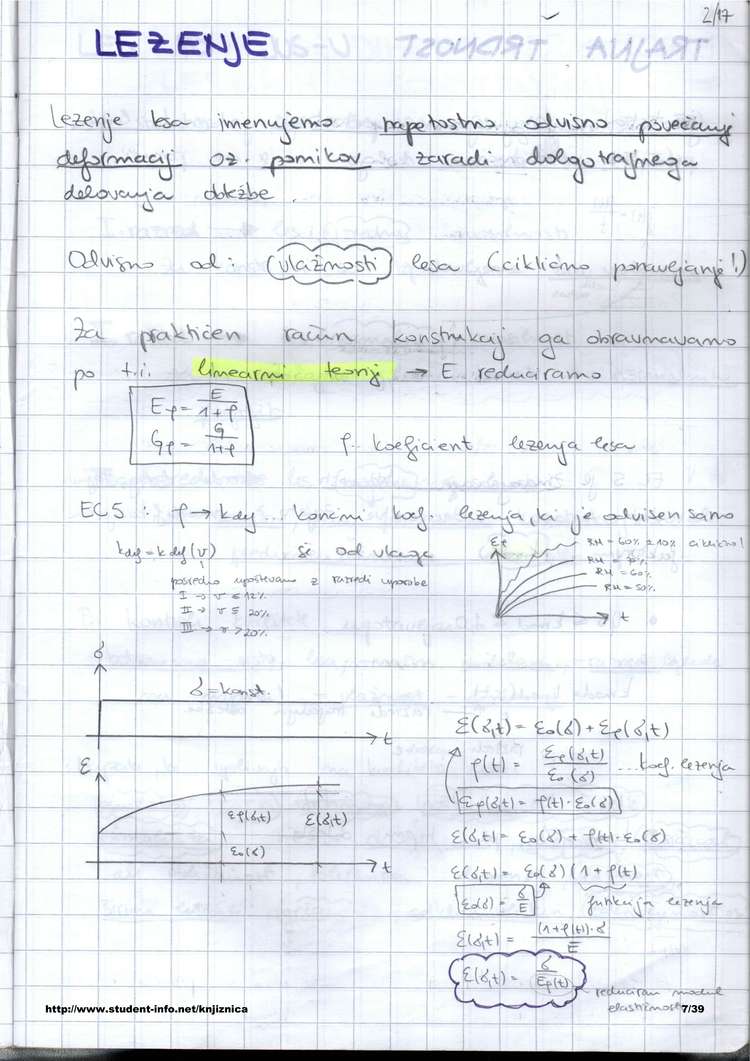 2/17
LEZENJE
Lezenje lesa imenujemo napetostno odvisno povečanj
deformacij oz. pomikov zaradi dolgotrajnega
delovanja obtežbe.
Odvisno od: vlažnosti lesa (ciklično ponavljanje!)
Za praktičen račun konstrukcij ga obravnavamo
po t.i. linearni teoriji → E reduciramo
Eφ = E/(1+φ)
Gφ = G/(1+φ)
φ.. koeficient lezenja lesa
EC5: φ → kdef... končni koef. lezenja, ki je odvisen samo
kdef = kdef(v) še od vlage
posredno upoštevamo z razredi uporabe
I → v ≤ 12%
II → v ≤ 20%
III → v > 20%
εφ
RH = 60% ± 10% ciklično!
RH = 60%
RH = 50%
t
σ
σ = konst.
t
ε
εφ(σ,t)
ε(σ,t)
ε0(σ)
t
ε(σ,t) = ε0(σ) + εφ(σ,t)
φ(t) = εφ(σ,t)/ε0(σ) ...koef. lezenja
εφ(σ,t) = φ(t)·ε0(σ)
ε(σ,t) = ε0(σ) + φ(t)·ε0(σ)
ε(σ,t) = ε0(σ)(1+φ(t))
ε0(σ) = σ/E
funkcija lezenja
ε(σ,t) = (1+φ(t))·σ/E
ε(σ,t) = σ/Eφ(t)
reduciran modul
elastičnosti
http://www.student-info.net/knjiznica
7/39